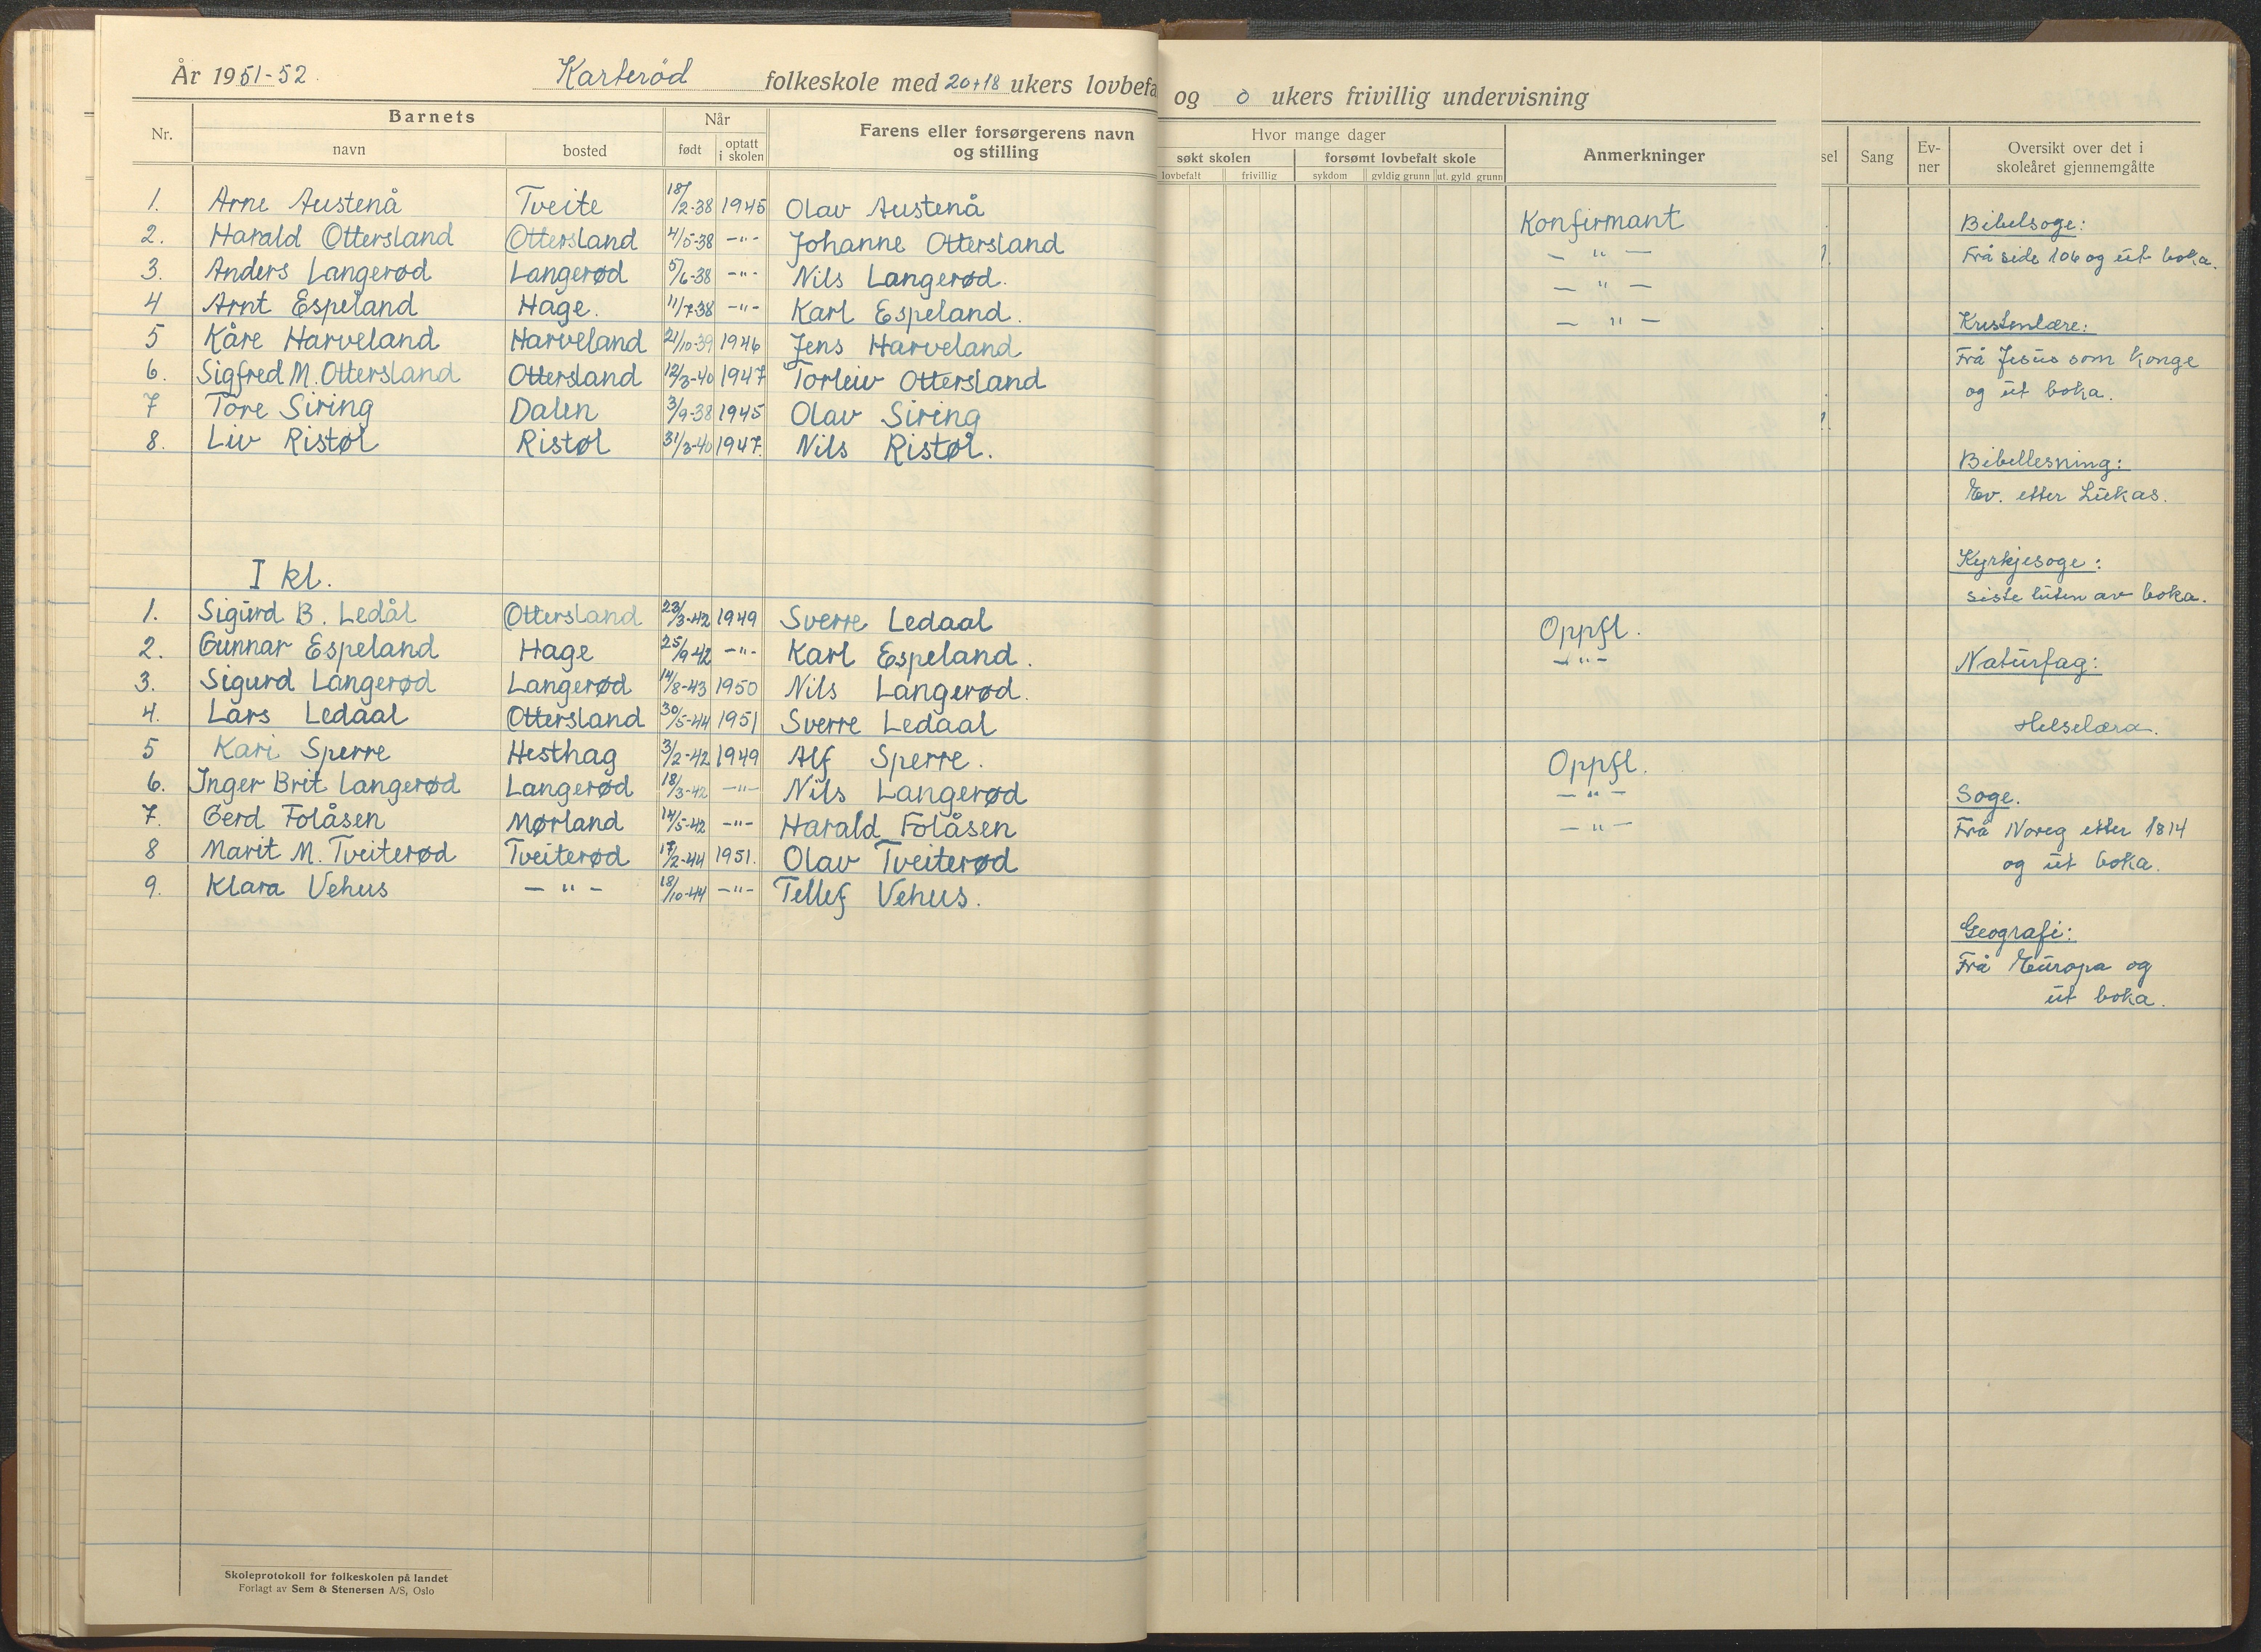 År 1951-52. Karterød folkeskole med 20+18 ukers lovbefa
og 0 ukers frivillig undervisning
Nr. Barnets Når Farens eller forsørgerens navn og stilling
navn bosted født optatt i skolen
1. Arne Austenå Tveite 18/2-38 1945 Olav Austenå
2. Harald Ottersland Ottersland 4/5-38 -"- Johanne Ottersland
3. Anders Langerød Langerød 5/6-38 -"- Nils Langerød.
4 Arnt Espeland Hage. 11/7-38 -"- Karl Espeland.
5 Kåre Harveland Harveland 21/10-39 1946 Jens Harveland
6. Sigfred M. Ottersland Ottersland 12/3-40 1947 Torleiv Ottersland
7 Tore Siring Dalen 3/9-38 1945 Olav Siring
8. Liv Ristøl Ristøl 31/3-40 1947. Nils Ristøl.
I kl.
1. Sigurd B. Ledål Ottersland 23/3-42 1949 Sverre Ledaal
2. Gunnar Espeland Hage 25/9-42 -"- Karl Espeland.
3. Sigurd Langerød Langerød 14/8-43 1950 Nils Langerød.
4. Lars Ledaal Ottersland 30/5-44 1951 Sverre Ledaal
5 Kari Sperre Hesthag 3/2-42 1949 Alf Sperre.
6. Inger Brit Langerød Langerød 18/3-42 -"- Nils Langerød
7. Gerd Folåsen Mørland 14/5-42 -"- Harald Folåsen
8 Marit M. Tveiterød Tveiterød 17/2-44 1951. Olav Tveiterød
9. Klara Vehus - " - 18/10-44 -"- Tellef Vehus.
Skoleprotokoll for folkeskolen på landet
Forlagt av Sem & Stenersen A/S, Oslo
Hvor mange dager Anmerkninger
søkt skolen forsømt lovbefalt skole
lovbefalt frivillig sykdom gyldig grunn ut. gyld grunn
Konfirmant
- " -
- " -
- " -
Oppfl.
- " -
Oppfl.
- " -
- " -
sel Sang Ev-
ner
Oversikt over det i
skoleåret gjennemgåtte
Bibelsoge:
Frå side 106 og ut boka.
Kristenlære:
Frå Jesus som Konge
og ut boka.
Bibellesning:
Ev. etter Lukas.
Kyrkjesoge:
siste luten av boka.
Naturfag:
Helselæra.
Soge.
Frå Noreg etter 1814
og ut boka.
Geografi:
Frå Europa og
ut boka.